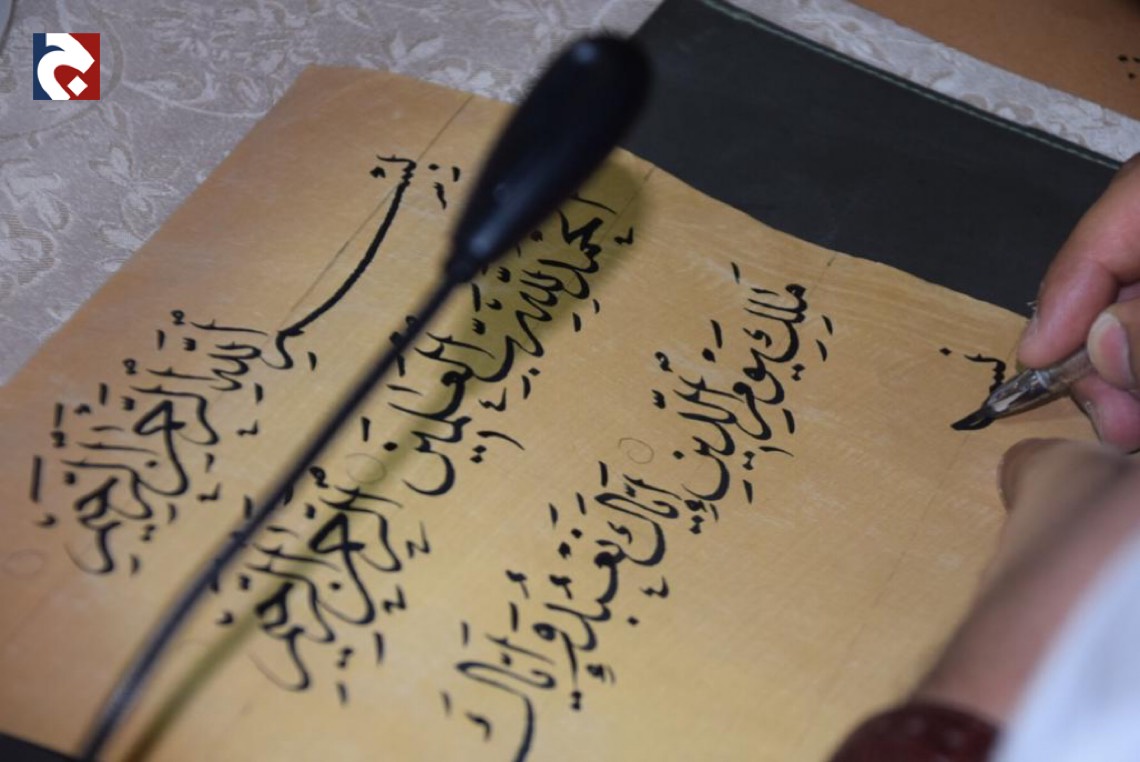 بِسْمِ اللَّهِ الرَّحْمَنِ الرَّحِيمِ
الْحَمْدُ لِلَّهِ رَبِّ الْعَالَمِينَ الرَّحْمَنِ الرَّحِيمِ
مَالِكِ يَوْمِ الدِّينِ إِيَّاكَ نَعْبُدُ وَإِيَّاكَ
نس